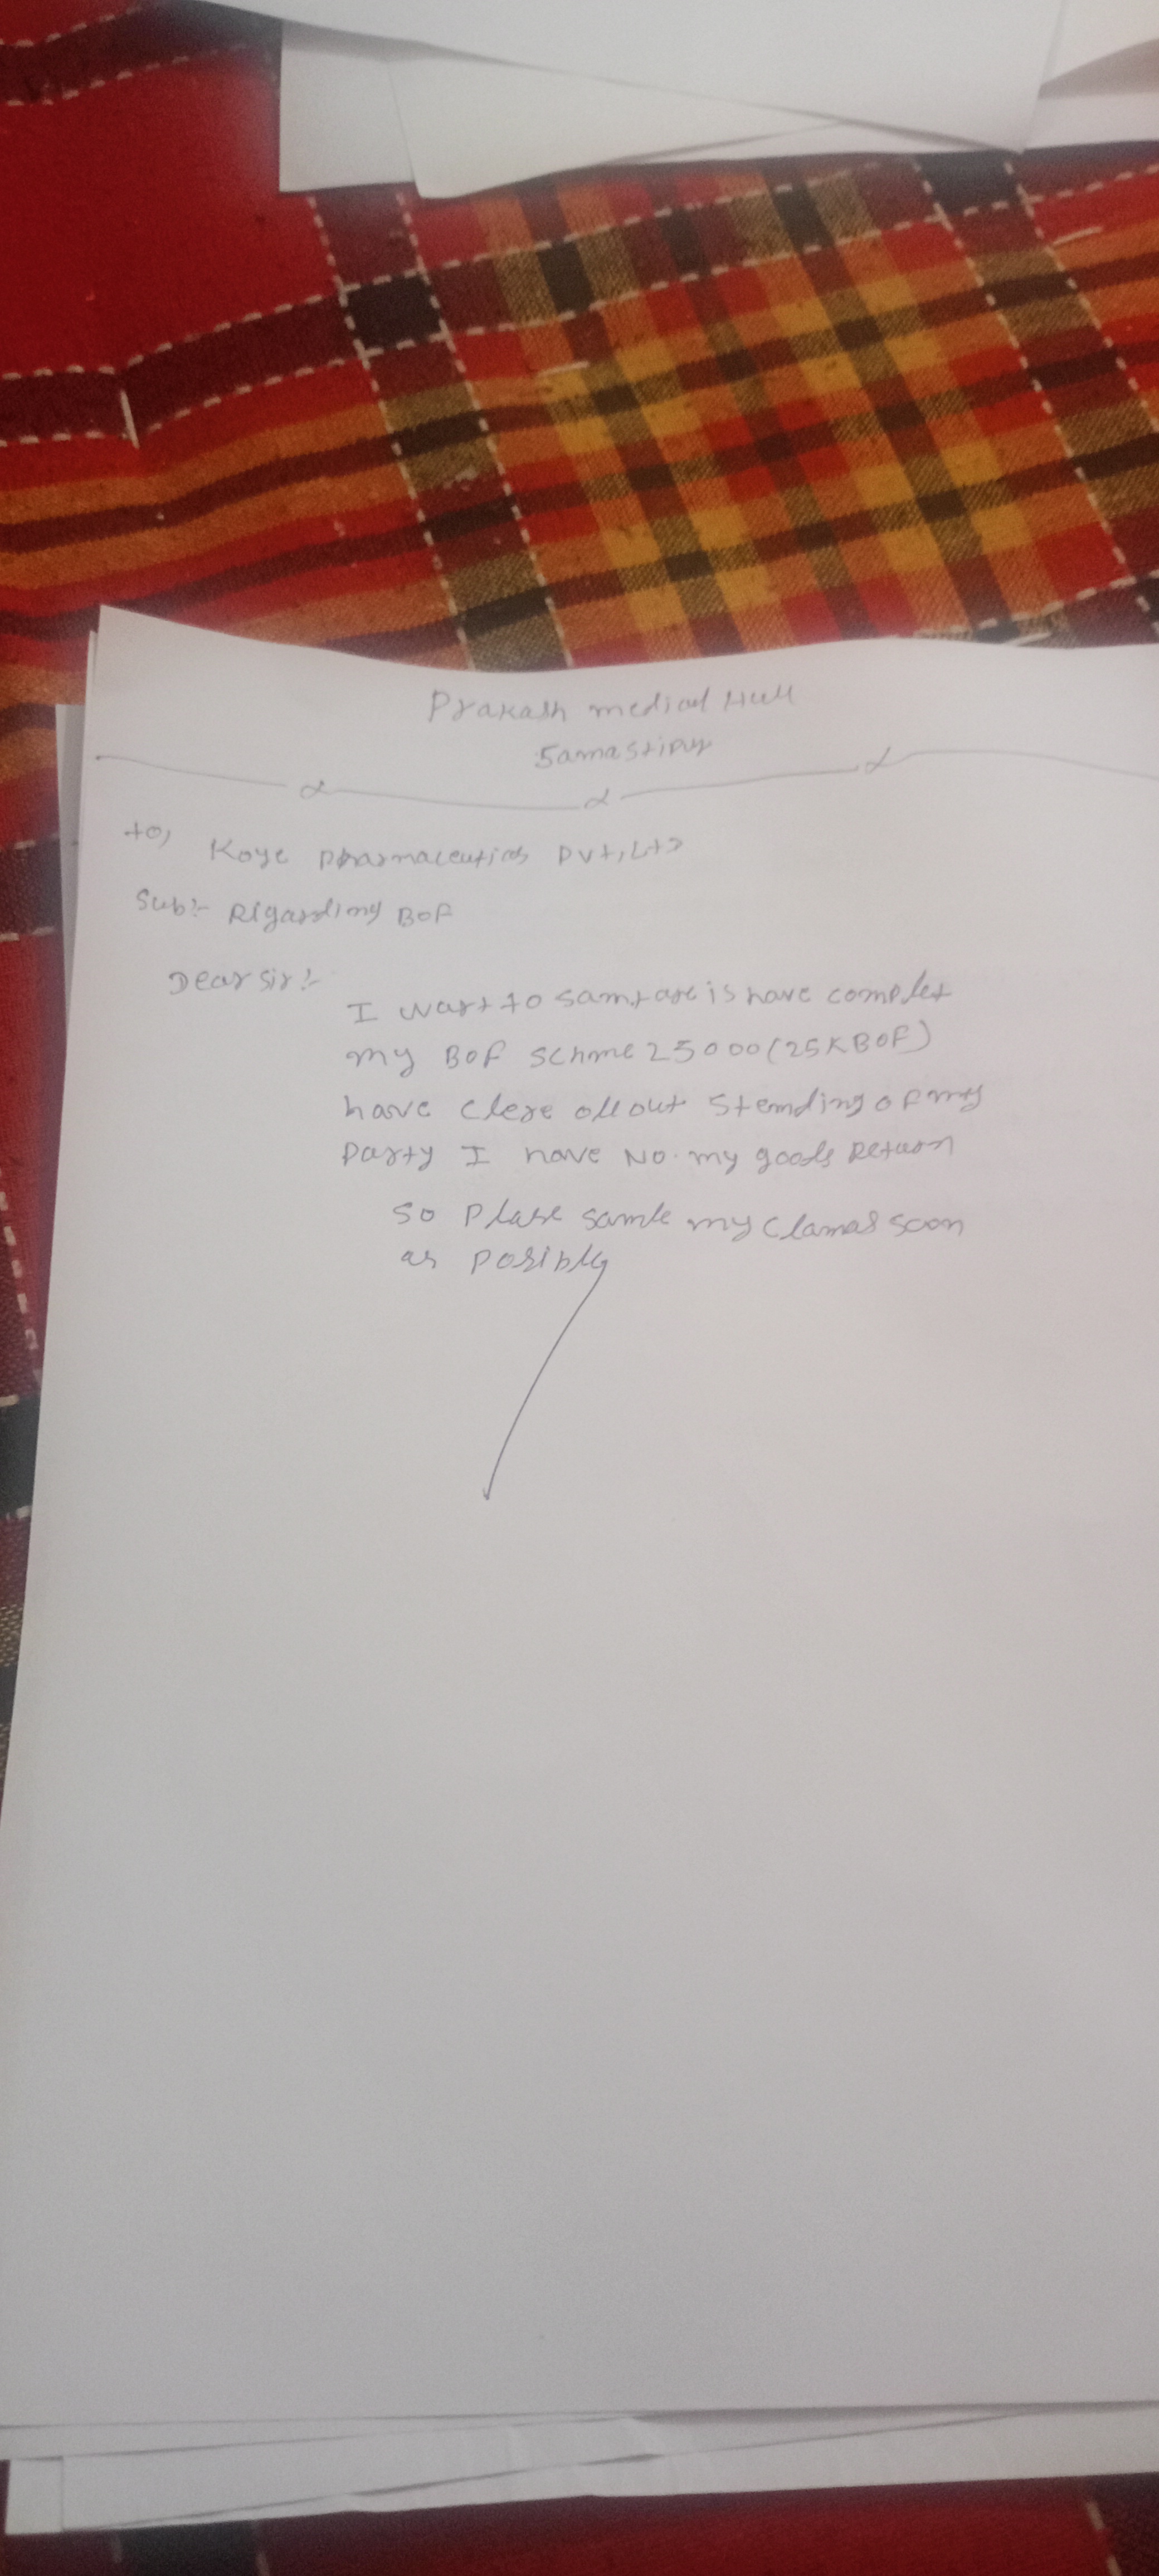 Prakash medical Hall
Samastipur
to,
Koye pharmaceuticas Pvt, Ltd
Sub:- Rigarding BOF
Dear sir:-
I want to is have complet
my BOF schme 25000 (25K BOF)
have clere all out standing of my
party I have No. my goods Return
so plase my clamas soon
as posibly